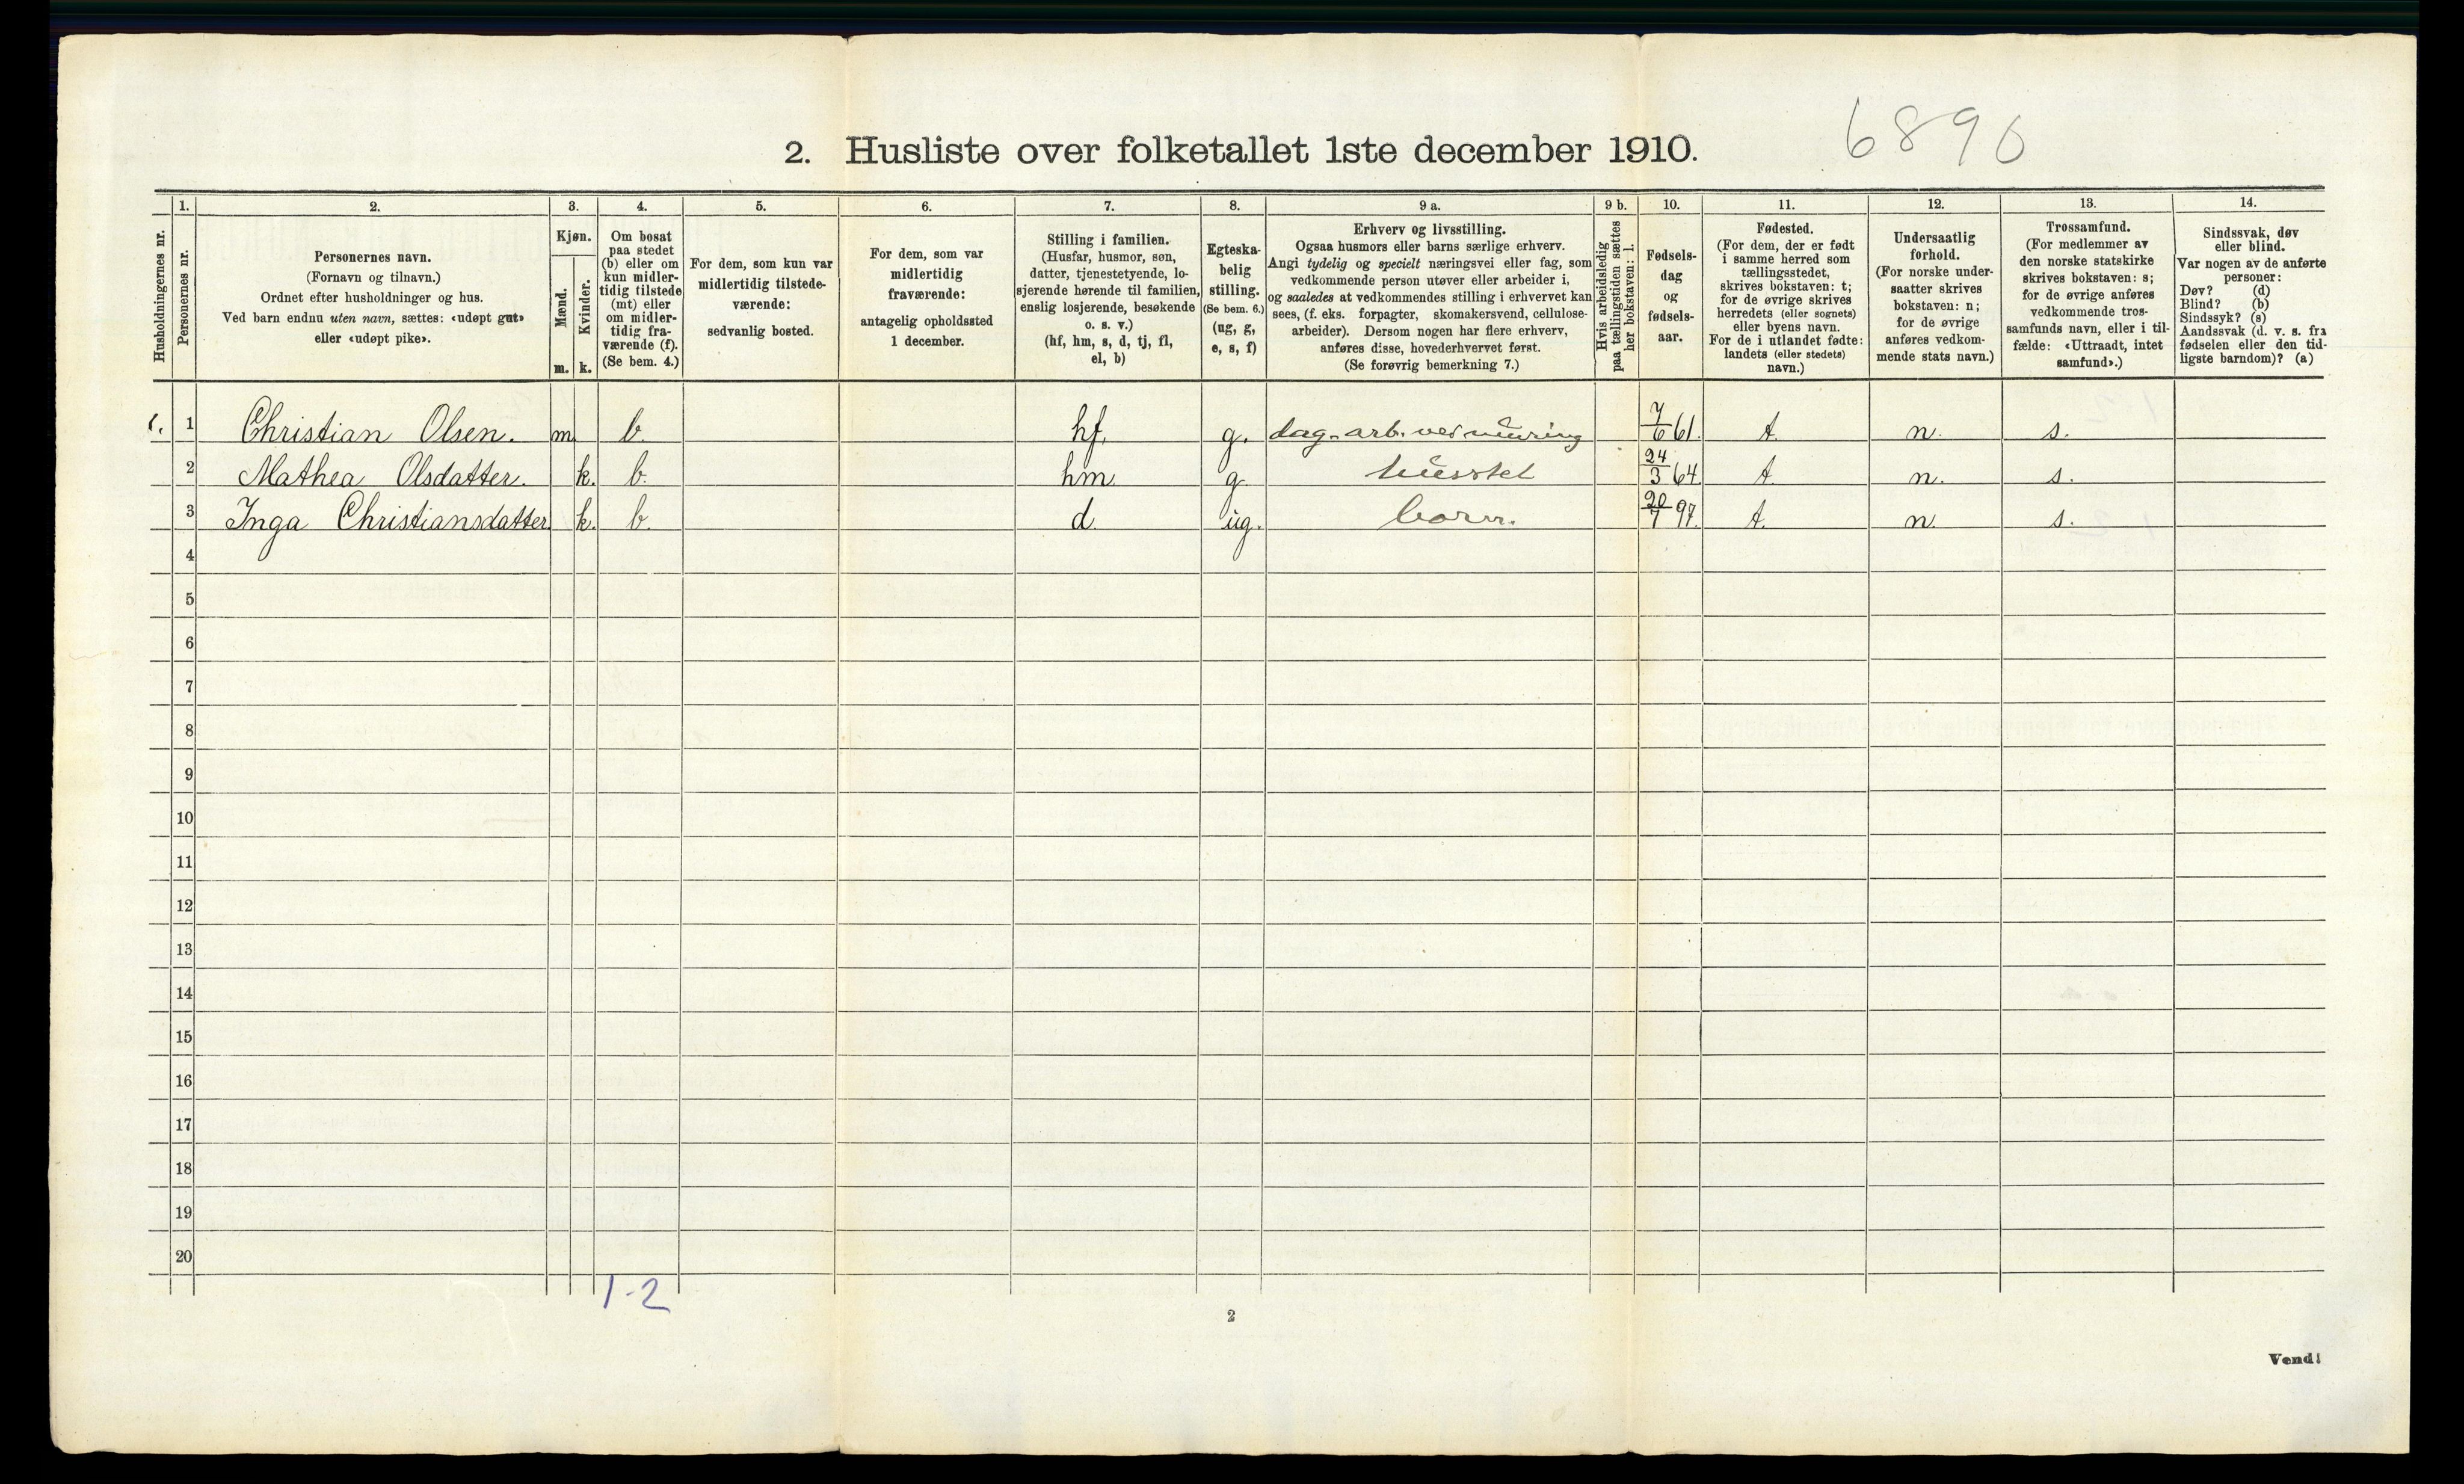 6890
2. Husliste over folketallet 1ste december 1910.
Husholdningernes nr.
1.
Personernes nr.
2.
Personernes navn.
(Fornavn og tilnavn.)
Ordnet efter husholdninger og hus.
Ved barn endnu uten navn, sættes: «udøpt gut»
eller «udøpt pike».
3.
Kjøn.
Mænd.
Kvinder.
m. k.
4.
Om bosat
paa stedet
(b) eller om
kun midler-
tidig tilstede
(mt) eller
om midler-
tidig fra-
værende (f).
(Se bem. 4.)
5.
For dem, som kun var
midlertidig tilstede-
værende:
sedvanlig bosted.
6.
For dem, som var
midlertidig
fraværende:
antagelig opholdssted
1 december.
7.
Stilling i familien.
(Husfar, husmor, søn,
datter, tjenestetyende, lo-
sjerende hørende til familien,
enslig losjerende, besøkende
o. s. v.)
(hf, hm, s, d, tj, fl,
el, b)
8.
Egteska-
belig
stilling.
(Se bem. 6.)
(ug, g,
e, s, f)
9 a.
Erhverv og livsstilling.
Ogsaa husmors eller barns særlige erhverv.
Angi tydelig og specielt næringsvei eller fag, som
vedkommende person utøver eller arbeider i,
og saaledes at vedkommendes stilling i erhvervet kan
sees, (f. eks. forpagter, skomakersvend, cellulose-
arbeider). Dersom nogen har flere erhverv,
anføres disse, hovederhvervet først.
(Se forøvrig bemerkning 7.)
9 b.
Hvis arbeidsledig
paa tællingstiden sættes
her bokstaven: l.
10.
Fødsels-
dag
og
fødsels-
aar.
11.
Fødested.
(For dem, der er født
i samme herred som
tællingsstedet,
skrives bokstaven: t;
for de øvrige skrives
herredets (eller sognets)
eller byens navn.
For de i utlandet fødte:
landets (eller stedets)
navn.)
12.
Undersaatlig
forhold.
(For norske under-
saatter skrives
bokstaven: n;
for de øvrige
anføres vedkom-
mende stats navn.)
13.
Trossamfund.
(For medlemmer av
den norske statskirke
skrives bokstaven: s;
for de øvrige anføres
vedkommende tros-
samfunds navn, eller i til-
fælde: «Uttraadt, intet
samfund».)
14.
Sindssvak, døv
eller blind.
Var nogen av de anførte
personer:
Døv? (d)
Blind? (b)
Sindssyk? (s)
Aandssvak (d. v. s. fra
fødselen eller den tid-
ligste barndom)? (a)
1. 1 Christian Olsen. m. b. hf. g. dag. arb. ved muring 7/6 61. t. n. s.
2 Mathea Olsdatter. k. b. hm g. husstel 24/3 64. t. n. s.
3 Inga Christiansdatter k. b. d. ug. barn. 20/7 97. t. n. s.
4
5
6
7
8
9
10
11
12
13
14
15
16
17
18
19
20
1-2
2
Vend!